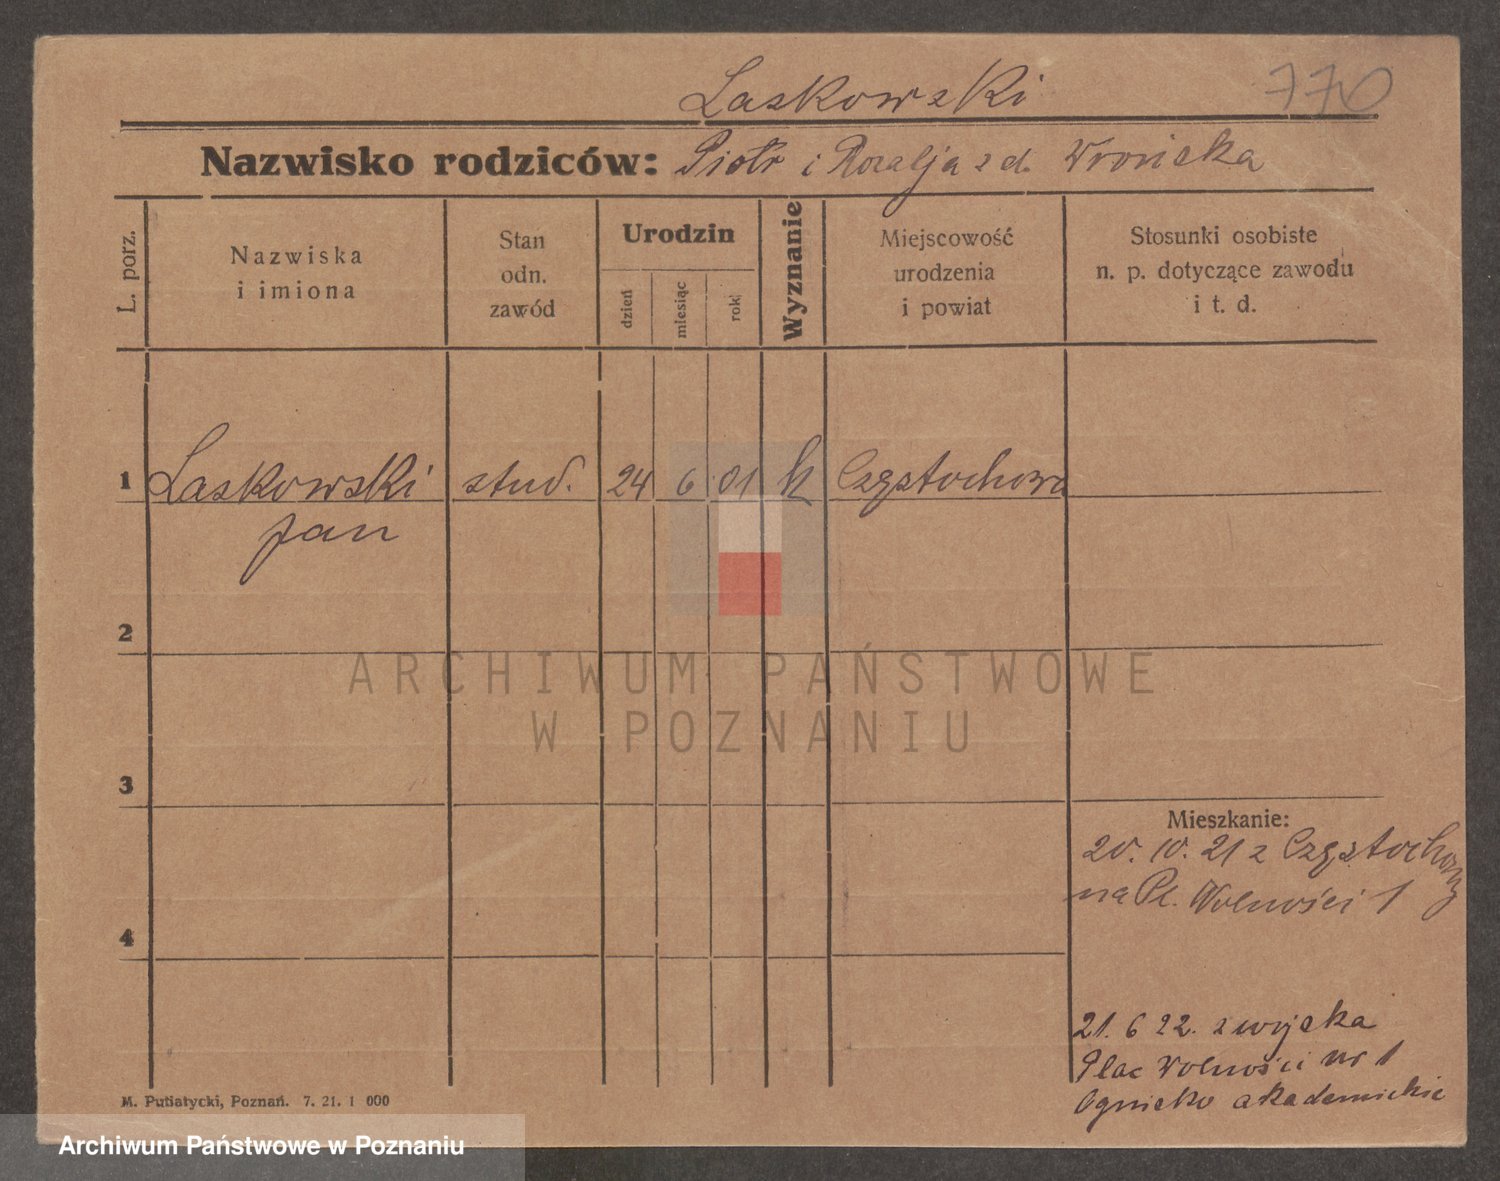 Laskowski 770
Nazwisko rodziców: Piotr i Rozalja z d. Wronicka
L. porz.
Nazwiska
i imiona
Stan
odn.
zawód
Urodzin
dzień
miesiąc
rok
Wyznanie
Miejscowość
urodzenia
i powiat
Stosunki osobiste
n. p. dotyczące zawodu
i t. d.
1 Laskowski stud. 24 6 01 k Częstochowa
Jan
2
ARCHIWUM PAŃSTWOWE
W POZNANIU
3
Mieszkanie:
20. 10. 21 z Częstochowy
na Pl. Wolności 1
4
21. 6 22. z wojska
Plac Wolności nr 1
Ognisko akademickie
M. Putiatycki, Poznań. 7. 21. 1 000
Archiwum Państwowe w Poznaniu